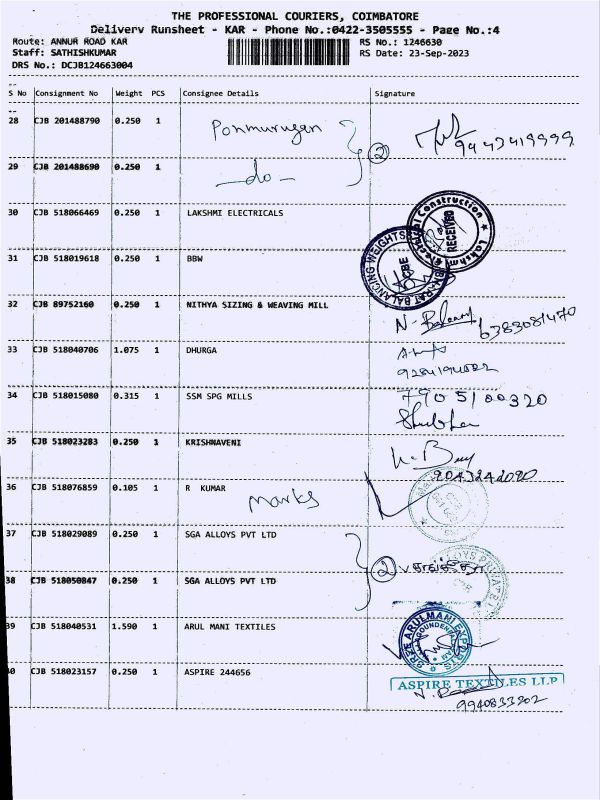 THE PROFESSIONAL COURIERS, COIMBATORE
Delivery Runsheet - KAR - Phone No.:0422-3505555 - Page No.:4
Route: ANNUR ROAD KAR RS No.: 1246630
Staff: SATHISHKUMAR RS Date: 23-Sep-2023
DRS No.: DCJB124663004
S No Consignment No Weight PCS Consignee Details Signature
28 CJB 201488790 0.250 1 Ponmurugan 2 9443419999
29 CJB 201488690 0.250 1 -do-
30 CJB 518066469 0.250 1 LAKSHMI ELECTRICALS Electrical Construction Lakshmi RECEIVED
31 CJB 518019618 0.250 1 BBW BHARAT BALANCING WEIGHTS CBE
32 CJB 89752160 0.250 1 NITHYA SIZING & WEAVING MILL N. 6383081470
33 CJB 518040706 1.075 1 DHURGA
34 CJB 518015080 0.315 1 SSM SPG MILLS 7905100320
35 CJB 518023283 0.250 1 KRISHNAVENI 9043242080
36 CJB 518076859 0.105 1 R KUMAR marks
37 CJB 518029089 0.250 1 SGA ALLOYS PVT LTD 2
38 CJB 518050847 0.250 1 SGA ALLOYS PVT LTD
39 CJB 518040531 1.590 1 ARUL MANI TEXTILES SREE ARULMANI EXPORTS
40 CJB 518023157 0.250 1 ASPIRE 244656 ASPIRE TEXTILES LLP
9940833202